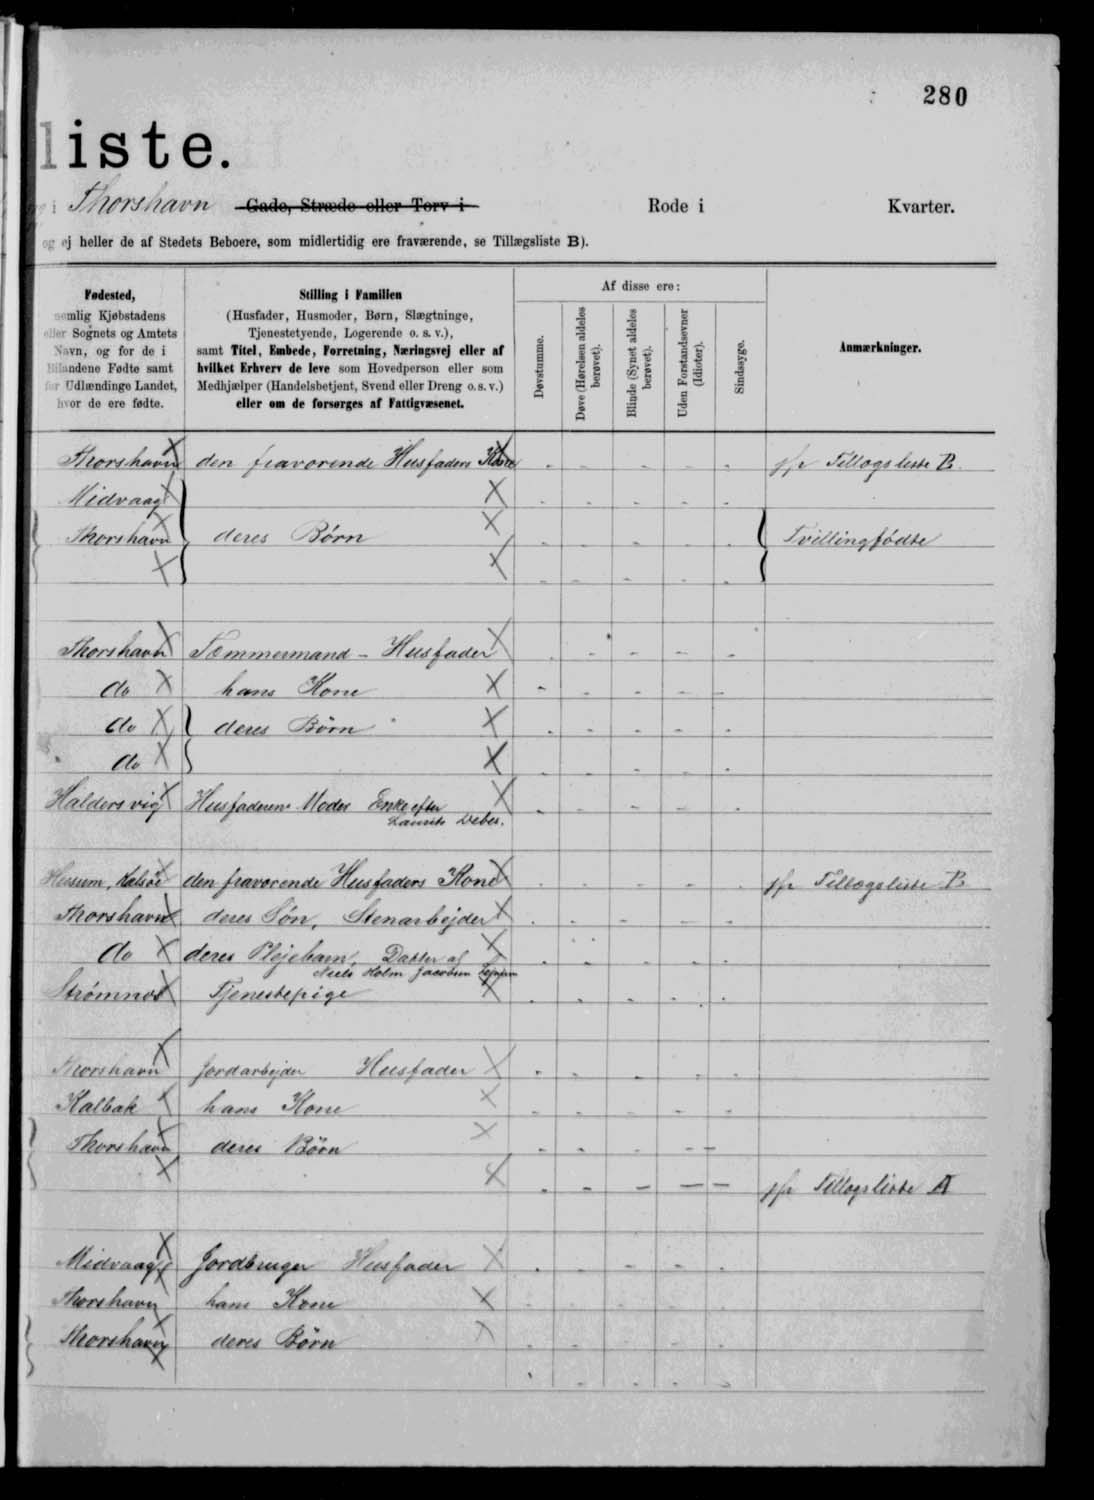 280
liste.
i Thorshavn Gade, Stræde eller Torv i Rode i Kvarter.
og ej heller de af Stedets Beboere, som midlertidig ere fraværende, se Tillægsliste B).
Fødested,
nemlig Kjøbstadens
eller Sognets og Amtets
Navn, og for de i
Bilandene Fødte samt
for Udlændinge Landet,
hvor de ere fødte.
Stilling i Familien
(Husfader, Husmoder, Børn, Slægtninge,
Tjenestetyende, Logerende o. s. v.),
samt Titel, Embede, Forretning, Næringsvej eller af
hvilket Erhverv de leve som Hovedperson eller som
Medhjælper (Handelsbetjent, Svend eller Dreng o. s. v.)
eller om de forsørges af Fattigvæsenet.
Af disse ere:
Døvstumme.
Døve (Hørelsen aldeles
berøvet).
Blinde (Synet aldeles
berøvet).
Uden Forstandsevner
(Idioter).
Sindssyge.
Anmærkninger.
Thorshavn den fraværende Husfaders Kone - - - - - jfr Tillægsliste B.
Midvaag - - - - -
Thorshavn deres Børn - - - - - Tvillingfødte
- - - - -
Thorshavn Tømmermand - Husfader - - - - -
do hans Kone - - - - -
do deres Børn - - - - -
do - - - - -
Haldersvig Husfaderens Moder Enke efter - - - - -
Laurits Debes.
Husum, Kalsøe den fraværende Husfaders Kone - - - - - jfr Tillægsliste B
Thorshavn deres Søn, Stenarbejder - - - - -
do deres Plejebarn, Datter af - - - - -
Niels Holm Jacobsen
Strømnæs Tjenestepige - - - - -
Thorshavn Jordarbejder Husfader - - - - -
Kalbak hans Kone - - - - -
Thorshavn deres Børn - - - - -
- - - - - jfr Tillægsliste A
Midvaag Jordbruger Husfader - - - - -
Thorshavn hans Kone - - - - -
Thorshavn deres Børn - - - - -
- - - - -